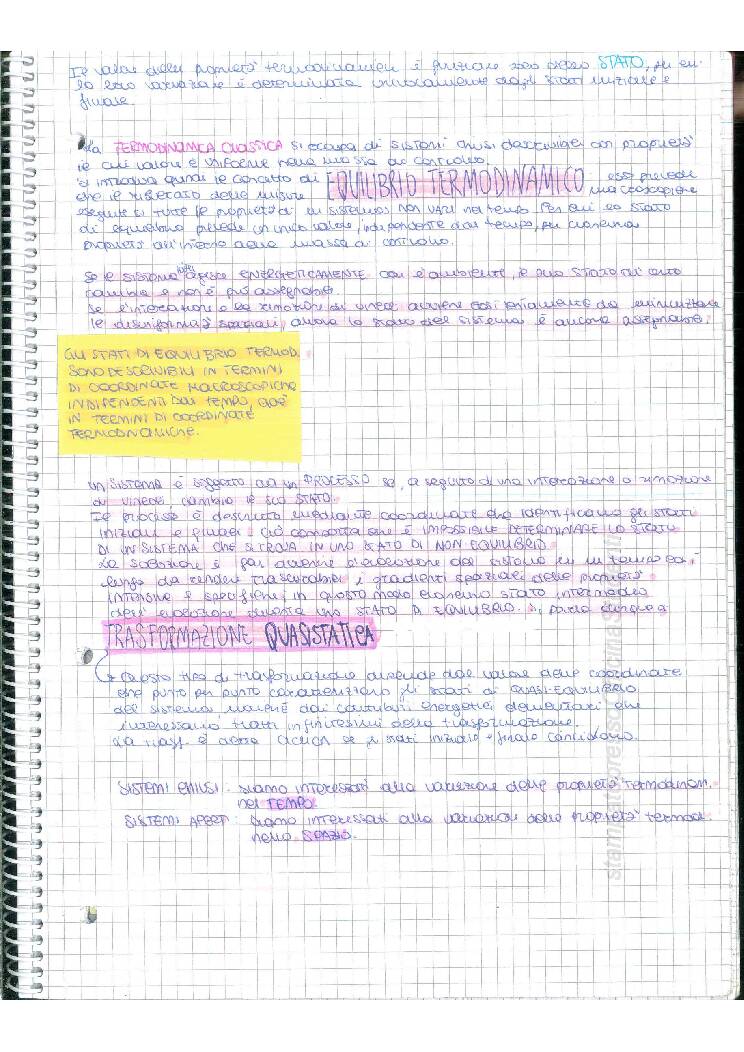 Il valore delle proprietà termodinamiche è funzione solo dello STATO, per cui
la loro variazione è determinata univocamente dagli stati iniziale e
finale.
La TERMODINAMICA CLASSICA si occupa di sistemi chiusi descrivibili con proprietà
il cui valore è uniforme nella massa di controllo.
si introduce quindi il concetto di EQUILIBRIO TERMODINAMICO esso prevede
che il risultato delle misure macroscopiche
eseguite di tutte le proprietà di un sistema NON VARI nel tempo. Per cui lo stato
di equilibrio prevede un unico valore, indipendente dal tempo, per ciascuna
proprietà all'interno della massa di controllo.
Se le sistema interagisce ENERGETICAMENTE con l'ambiente, il suo STATO
cambia e non è più assegnabile.
Se l'interazione o la rimozione di vincoli avviene così lentamente da minimizzare
le disuniformità spaziali, allora lo stato del sistema è ancora assegnabile.
GLI STATI DI EQUILIBRIO TERMOD.
SONO DESCRIVIBILI IN TERMINI
DI COORDINATE MACROSCOPICHE
INDIPENDENTI DAL TEMPO, CIOÈ
IN TERMINI DI COORDINATE
TERMODINAMICHE.
UN SISTEMA È soggetto ad un PROCESSO se, a seguito di una interazione o rimozione
di vincoli, cambia il suo STATO.
Il processo è descritto mediante coordinate che identificano gli stati
iniziali e finali. Ciò comporta che è IMPOSSIBILE DETERMINARE LO STATO
DI UN SISTEMA CHE SI TROVA IN UNO STATO DI NON EQUILIBRIO.
La soluzione è far avvenire l'evoluzione del sistema in un tempo così
lungo da rendere trascurabili i gradienti spaziali delle proprietà
INTENSIVE e specifiche; in questo modo ciascuno stato intermedio
dell'evoluzione diventa uno STATO DI EQUILIBRIO. Si parla dunque di
TRASFORMAZIONE QUASISTATICA
→ Questo tipo di trasformazione dipende dal valore delle coordinate
che punto per punto caratterizzano gli stati di QUASI-EQUILIBRIO
del sistema nonché dai contributi energetici elementari che
interessano tratti infinitesimi della trasformazione.
La trasf. è detta CICLICA se gli stati iniziale e finale coincidono.
SISTEMI CHIUSI: siamo interessati alla variazione delle proprietà termodinam.
nel TEMPO.
SISTEMI APERTI: siamo interessati alla variazione delle proprietà termod.
nello SPAZIO.